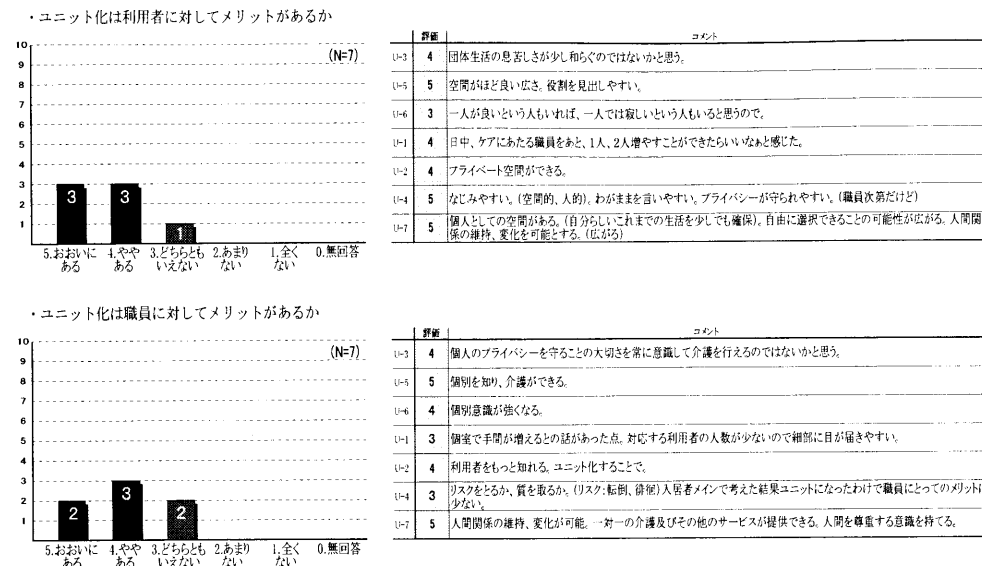 ・ユニット化は利用者に対してメリットがあるか
(N=7)
10
9
8
7
6
5
4
3
2
1
3
3
1
5.おおいに
ある
4.やや
ある
3.どちらとも
いえない
2.あまり
ない
1.全く
ない
0.無回答
評価 コメント
U-3 4 団体生活の息苦しさが少し和らぐのではないかと思う。
U-5 5 空間がほど良い広さ。役割を見出しやすい。
U-6 3 一人が良いという人もいれば、一人では寂しいという人もいると思うので。
U-1 4 日中、ケアにあたる職員をあと、1人、2人増やすことができたらいいなぁと感じた。
U-2 4 プライベート空間ができる。
U-4 5 なじみやすい。(空間的、人的)。わがままを言いやすい。プライバシーが守られやすい。(職員次第だけど)
U-7 5 個人としての空間がある。(自分らしいこれまでの生活を少しでも確保)。自由に選択できることの可能性が広がる。人間関
係の維持、変化を可能とする。(広がる)
・ユニット化は職員に対してメリットがあるか
(N=7)
10
9
8
7
6
5
4
3
2
1
2
3
2
5.おおいに
ある
4.やや
ある
3.どちらとも
いえない
2.あまり
ない
1.全く
ない
0.無回答
評価 コメント
U-3 4 個人のプライバシーを守ることの大切さを常に意識して介護を行えるのではないかと思う。
U-5 5 個別を知り、介護ができる。
U-6 4 個別意識が強くなる。
U-1 3 個室で手間が増えるとの話があった点。対応する利用者の人数が少ないので細部に目が届きやすい。
U-2 4 利用者をもっと知れる。ユニット化することで。
U-4 3 リスクをとるか、質を取るか。(リスク:転倒、徘徊)入居者メインで考えた結果ユニットになったわけで職員にとってのメリットは
少ない。
U-7 5 人間関係の維持、変化が可能。一対一の介護及びその他のサービスが提供できる。人間を尊重する意識を持てる。